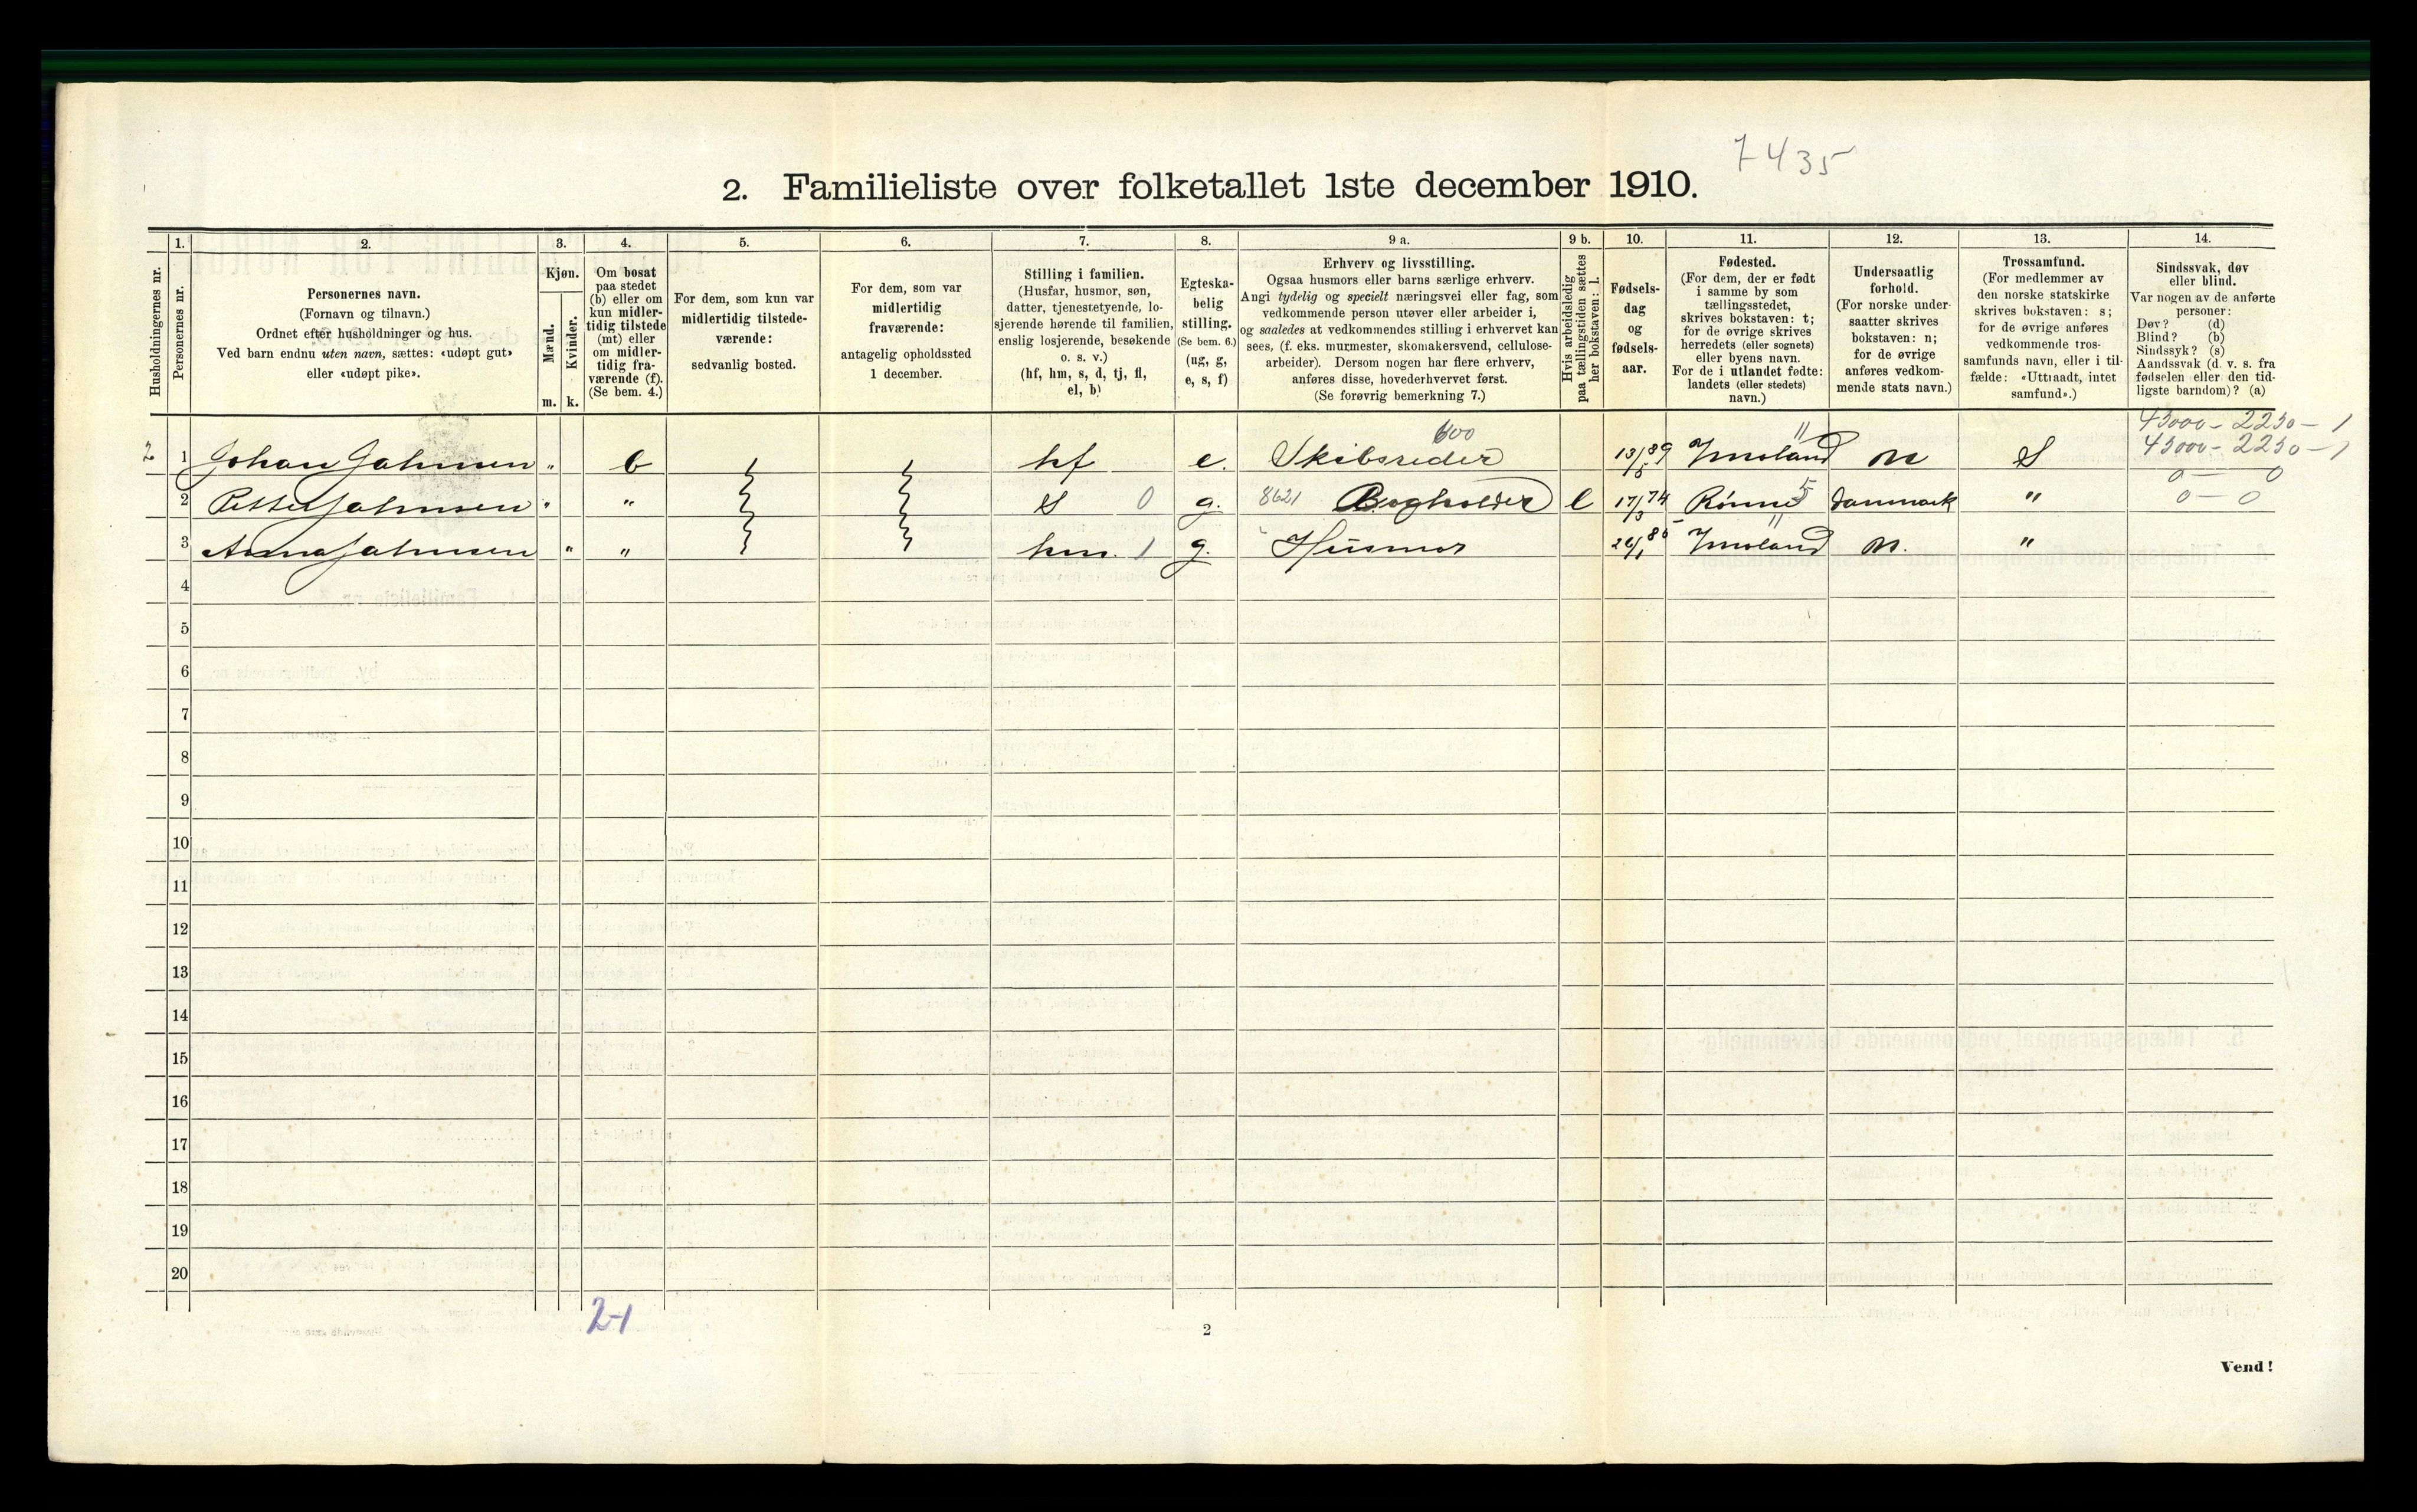 7435
2. Familieliste over folketallet 1ste december 1910.
Husholdningernes nr.
1.
Personernes nr.
2.
Personernes navn.
(Fornavn og tilnavn.)
Ordnet efter husholdninger og hus.
Ved barn endnu uten navn, sættes: «udøpt gut»
eller «udøpt pike».
3.
Kjøn.
Mænd.
Kvinder.
m. k.
4.
Om bosat
paa stedet
(b) eller om
kun midler-
tidig tilstede
(mt) eller
om midler-
tidig fra-
værende (f).
(Se bem. 4.)
5.
For dem, som kun var
midlertidig tilstede-
værende:
sedvanlig bosted.
6.
For dem, som var
midlertidig
fraværende:
antagelig opholdssted
1 december.
7.
Stilling i familien.
(Husfar, husmor, søn,
datter, tjenestetyende, lo-
sjerende hørende til familien,
enslig losjerende, besøkende
o. s. v.)
(hf, hm, s, d, tj, fl,
el, b)
8.
Egteska-
belig
stilling.
(Se bem. 6.)
(ug, g,
e, s, f)
9 a.
Erhverv og livsstilling.
Ogsaa husmors eller barns særlige erhverv.
Angi tydelig og specielt næringsvei eller fag, som
vedkommende person utøver eller arbeider i,
og saaledes at vedkommendes stilling i erhvervet kan
sees, (f. eks. murmester, skomakersvend, cellulose-
arbeider). Dersom nogen har flere erhverv,
anføres disse, hovederhvervet først.
(Se forøvrig bemerkning 7.)
9 b.
Hvis arbeidsledig
paa tællingstiden sættes
her bokstaven: l.
10.
Fødsels-
dag
og
fødsels-
aar.
11.
Fødested.
(For dem, der er født
i samme by som
tællingsstedet,
skrives bokstaven: t;
for de øvrige skrives
herredets (eller sognets)
eller byens navn.
For de i utlandet fødte:
landets (eller stedets)
navn.)
12.
Undersaatlig
forhold.
(For norske under-
saatter skrives
bokstaven: n;
for de øvrige
anføres vedkom-
mende stats navn.)
13.
Trossamfund.
(For medlemmer av
den norske statskirke
skrives bokstaven: s;
for de øvrige anføres
vedkommende tros-
samfunds navn, eller i til-
fælde: «Uttraadt, intet
samfund».)
14.
Sindssvak, døv
eller blind.
Var nogen av de anførte
personer:
Døv? (d)
Blind? (b)
Sindssyk? (s)
Aandssvak (d. v. s. fra
fødselen eller den tid-
ligste barndom)? (a)
45000 - 2250 - 1
600
2 1 Johan Jahnsen " b hf e. Skibsreder 13/5 Imoland n S 45000 - 2250 - 1
0 — 0
2 Petter Jahnsen " " S 0 g. 8621 Bogholder l 17/3 74 Rønne 5 Danmark " 0 — 0
3 Anna Jahnsen " " hm. 1 g. Husmor Imoland n. "
4
5
6
7
8
9
10
11
12
13
14
15
16
17
18
19
20
2-1
2
Vend!